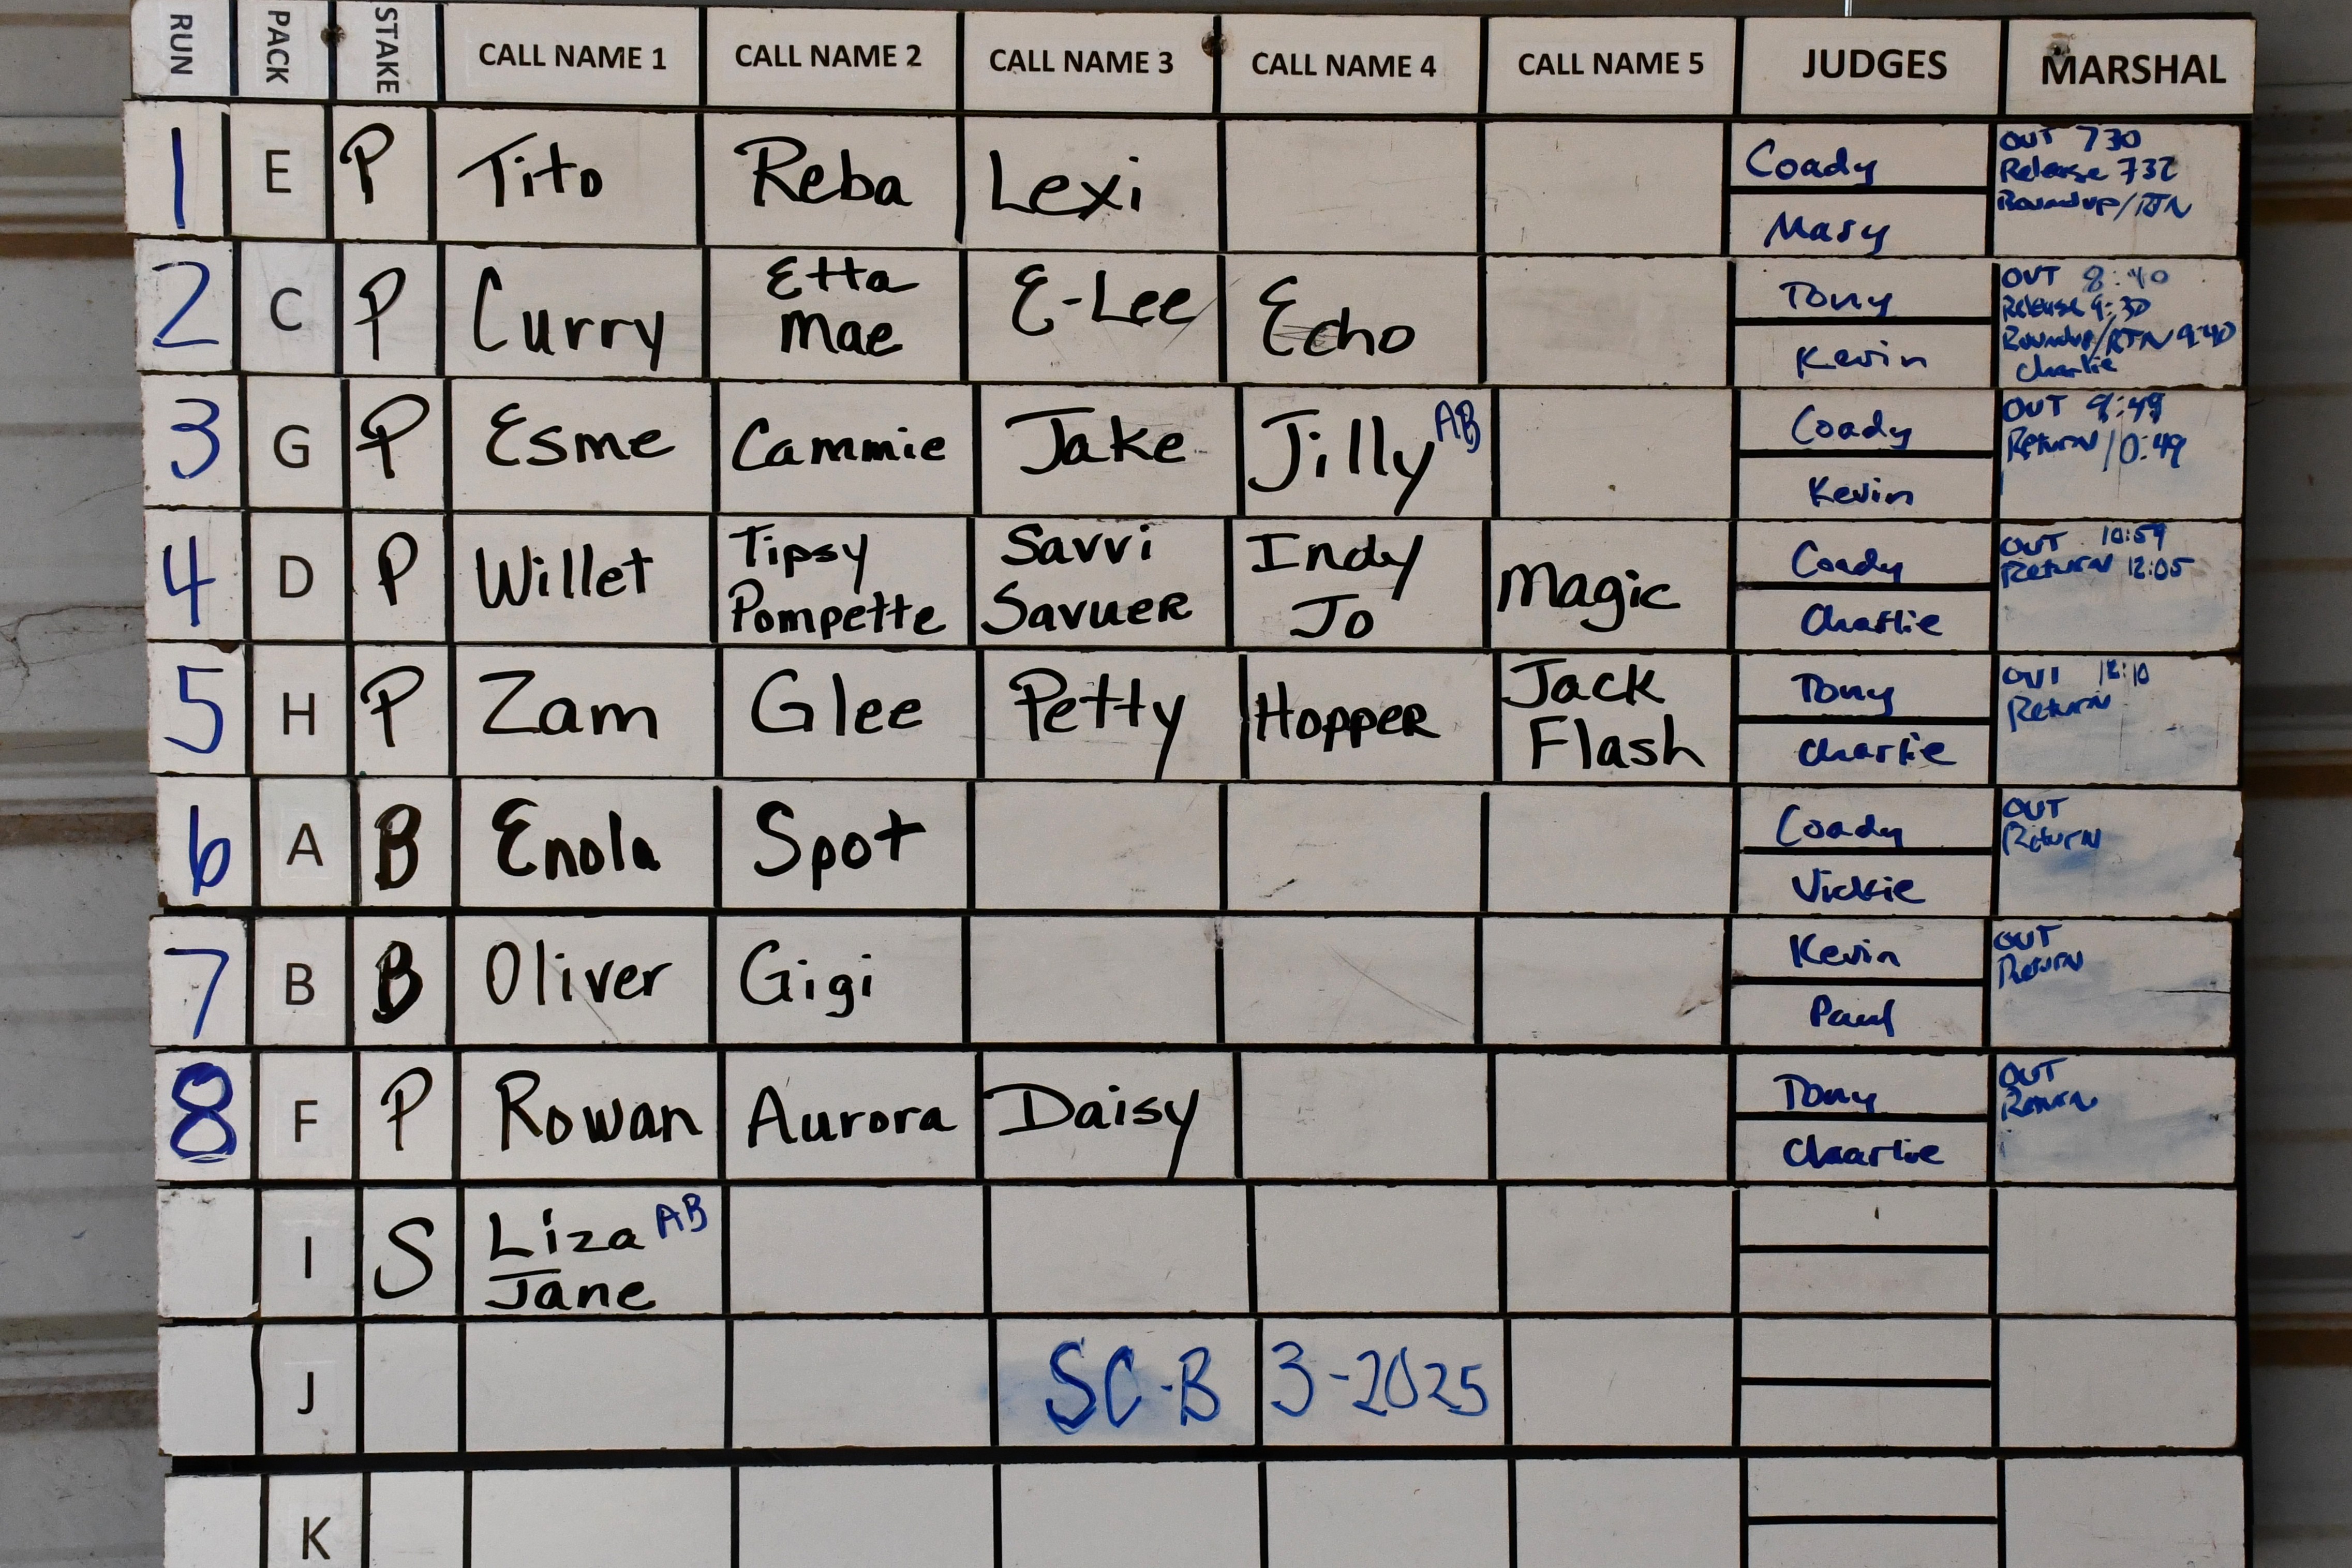 RUN PACK STAKE CALL NAME 1 CALL NAME 2 CALL NAME 3 CALL NAME 4 CALL NAME 5 JUDGES MARSHAL
1 E P Tito Reba Lexi
Coady
Mary
OUT 730
Release 732
Roundup/RTN
2 C P Curry
Etta
Mae
E-Lee Echo
Tony
Kevin
OUT 8:40
Release 9:30
Roundup/RTN 9:40
Charlie
3 G P Esme Cammie Jake Jilly AB
Coady
Kevin
OUT 9:49
Return 10:49
4 D P Willet
Tipsy
Pompette
Savvi
Savuer
Indy
Jo
Magic
Coady
Charlie
OUT 10:59
Return 12:05
5 H P Zam Glee Petty Hopper
Jack
Flash
Tony
Charlie
OUT 12:10
Return
6 A B Enola Spot
Coady
Vickie
OUT
Return
7 B B Oliver Gigi
Kevin
Paul
OUT
Return
8 F P Rowan Aurora Daisy
Tony
Charlie
OUT
Return
I S
Liza AB
Jane
J SC-B 3-2025
K